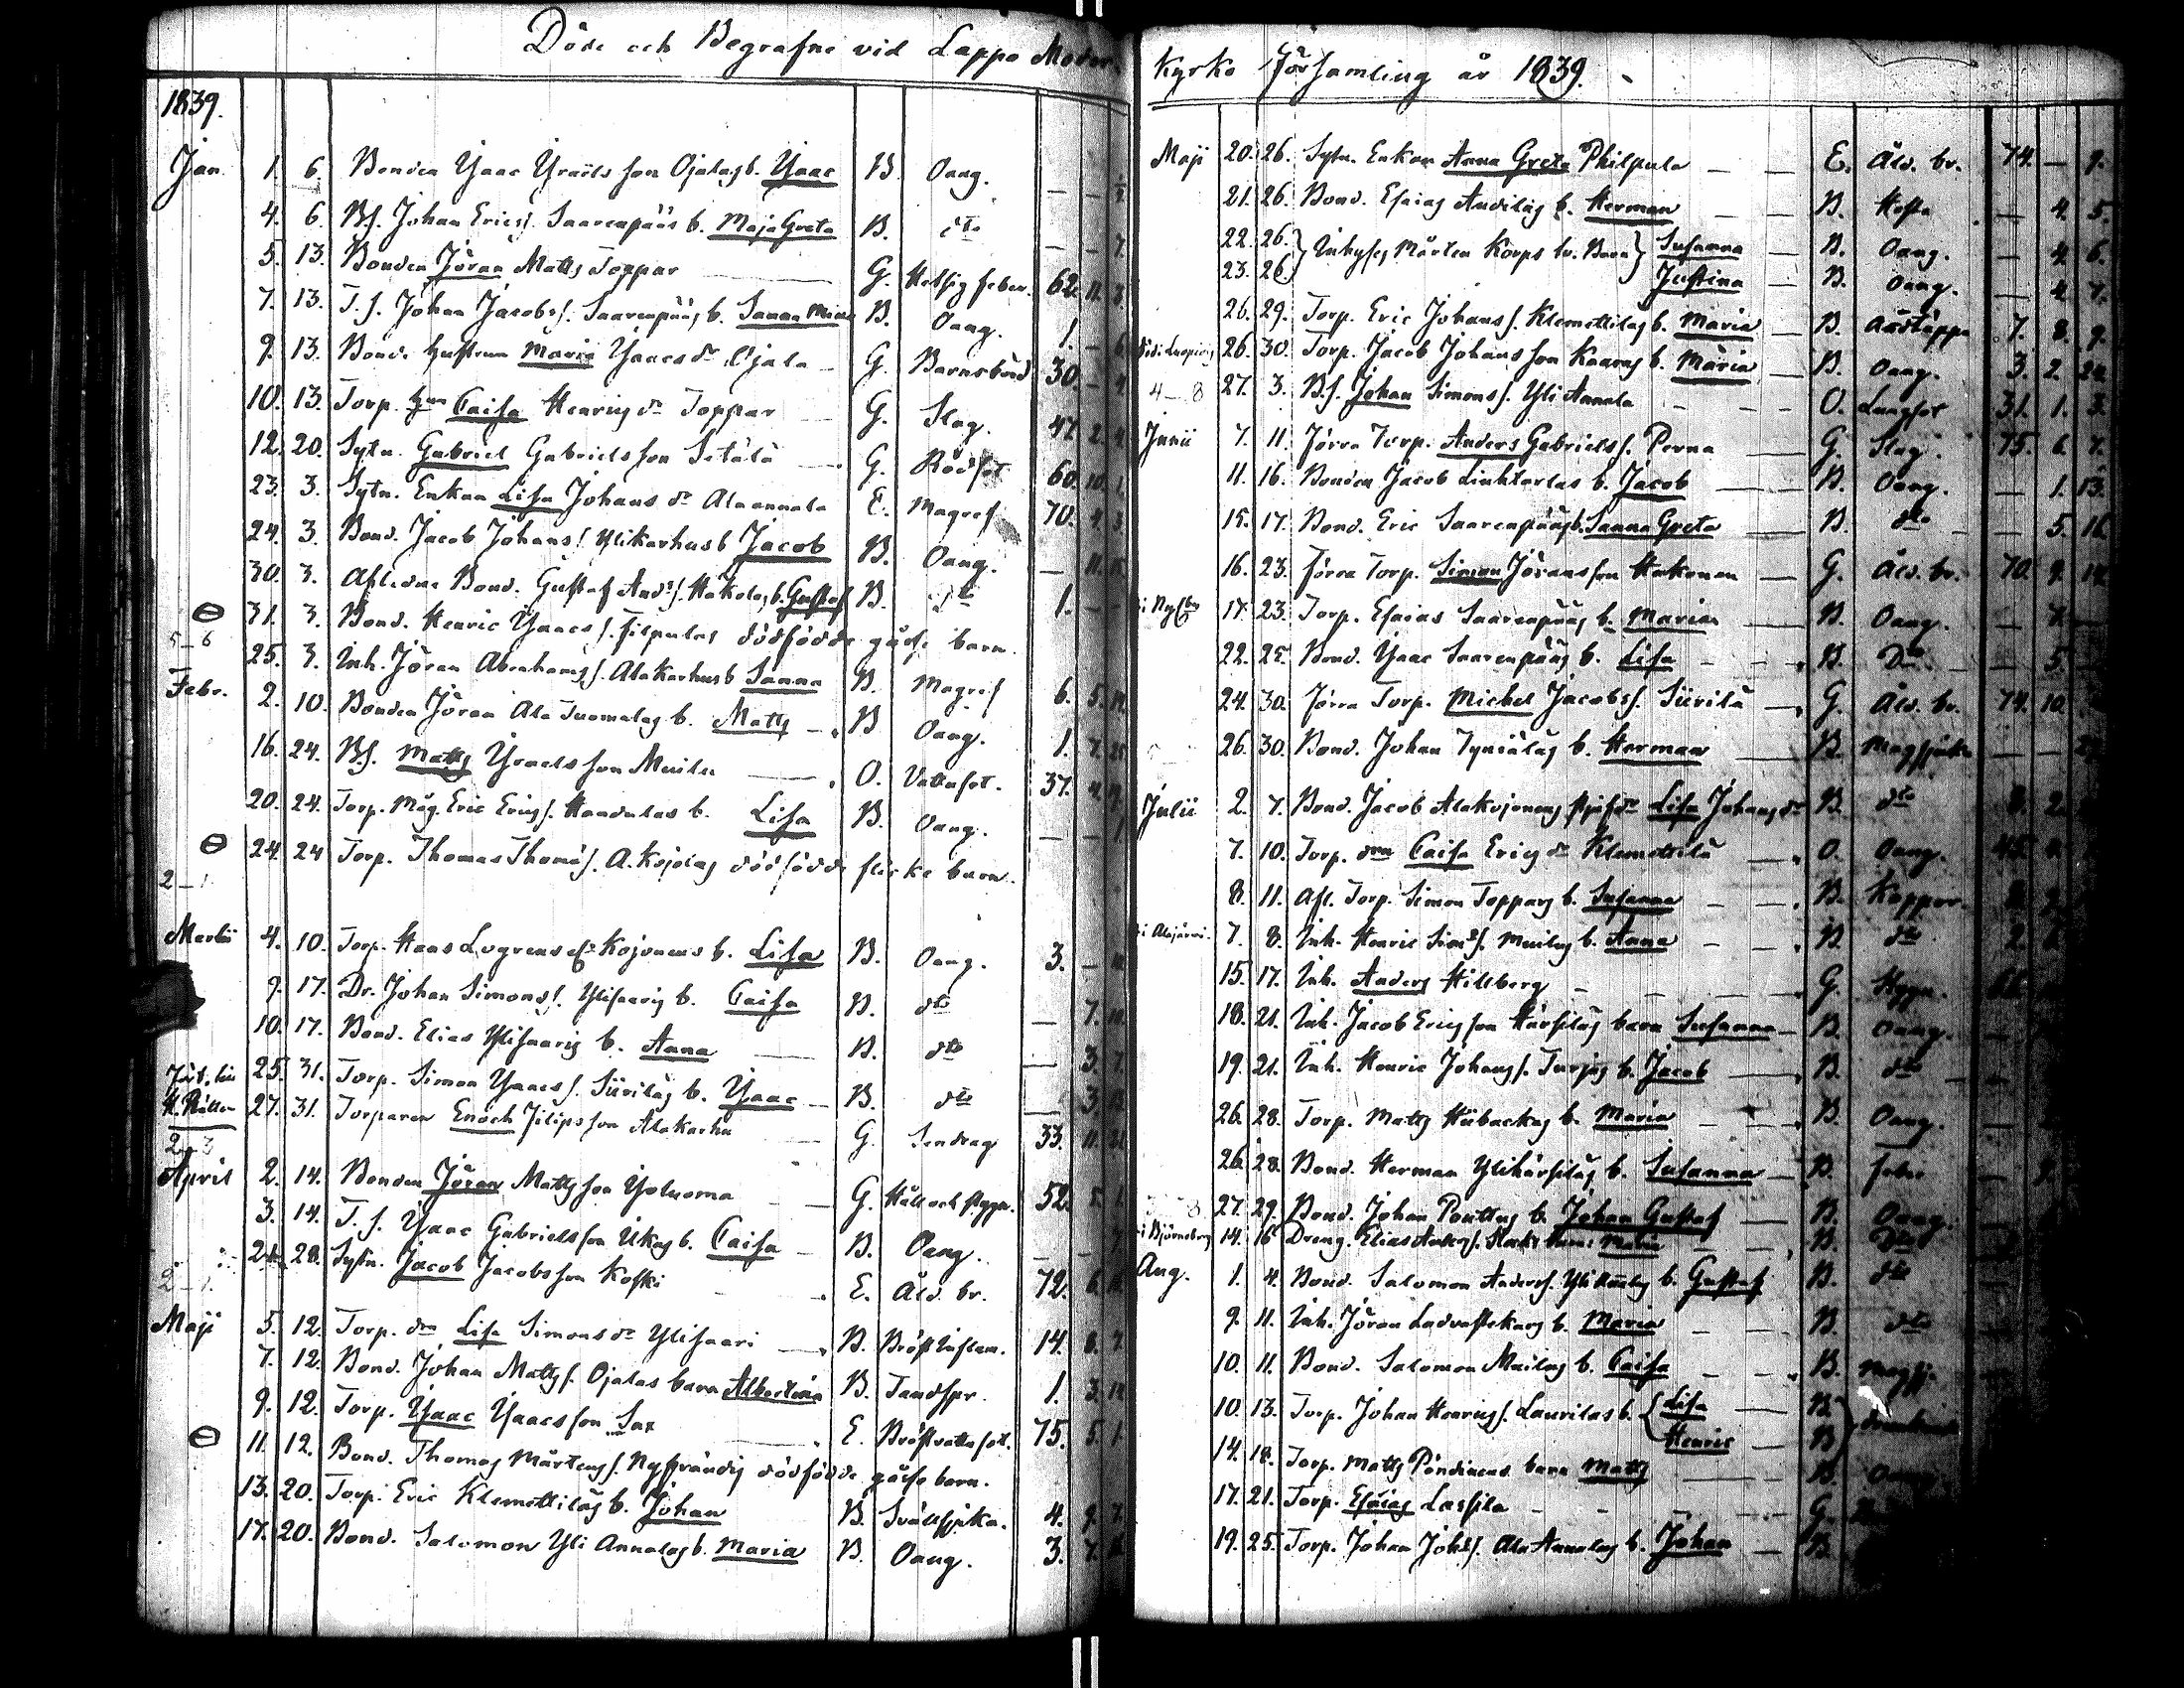 Döde och Begrafne vid Lappo Moder
1839.
Jan. 1. 6. Bonden Isaac Israels son Ojalas b. Isaac B. Oang. — —
4. 6. B.s. Johan Ericss. Saarenpääs b. Maja Greta B. dto — — 7.
5. 13. Bonden Jöran Matts Toppar G. Hetsig feber. 62. 11. 3.
7. 13. T. s. Johan Jacobs s. Saarenpääs b. Sanna Maria B. Oang. 1. — 6.
9. 13. Bond. hustrun Maria Isaacs dr Ojala G. Barnsbörd 30. —
10. 13. Torp. hun Caisa Henrics dr Toppar G. Slag. 47. 2. 4.
12. 20. Sytn. Gabriel Gabriels son Setälä G. Rödsot 60. 10.
23. 3. Sytn. Enkan Lisa Johans dr Alaannala E. Magref 70. 4. 3.
24. 3. Bond. Jacob Johans s. Ylikarhus b. Jacob B. Oang. — 11. 15.
30. 3. Afledne Bond. Gustaf And. s. Hakolas b. Gustaf B. dto 1. — —
31. 3. Bond. Henric Isaacs s. Filpulas dödfödde gåsse barn.
5_6
25. 3. Inh. Jöran Abrahams s. Alakarhus b. Sanna B. Magref 6. 5. 19.
Febr. 2. 10. Bonden Jöran Ala Tuomalas b. Matts B Oang. 1. 7. 25.
16. 24. B.s. Matts Israels son Muilu O. Vattusot. 37. 4.
20. 24. Torp. Måg. Eric Erics s. Haudalas b. Lisa B. Oang. — —
24. 24 Torp. Thomas Thomæ s. A. Kojolas dödfödde flicke barn.
2_1.
Martii 4. 10. Torp. Hans Logrens Kojonens b. Lisa B. Oang. 3. —
9. 17. Dr. Johan Simons s. Ylisaaris b. Caisa B. dto — 7.
10. 17. Bond. Elias Ylisaaris b. Anna B. dto — 3.
25. 31. Torp. Simon Isaacs s. Siiriläs b. Isaac B. dto — 3.
27. 31. Torparen Enoch Filips son Alakarhu G. Lendrag 33. 11. 21.
2_3
April 2. 14. Bonden Jöran Matts son Yoluoma G. Håll och stygn. 52. 5.
3. 14. T. s. Isaac Gabriels son Ukas b. Caisa B. Oang. — —
28. Sytn. Jacob Jacobs son Koski E. Åld. br. 72. 6.
2_1.
Maji 5. 12. Torp. drn Lisa Simons dr Ylisaari B. Bröst inflam. 14. 8. 7.
7. 12. Bond. Johan Matts s. Ojalas barn Albertina B. Tandspr. 1. 3. 19.
9. 12. Torp. Isaac Isaacs son Sax E. Bröstvattusot. 75. 5. 1.
11. 12. Bond. Thomas Mårtens s. Nysträndis dödfödde gåsse barn.
13. 20. Torp. Eric Klemettiläs b. Johan B. Svällsjuka. 4. 9.
17. 20. Bond. Salomon Yli Annalas b. Maria B. Oang. 3. 7.
Kyrko Församling år 1839.
Maji 20. 26. Sytn. Enkan Anna Greta Philpula E. Åld. br. 74. — 9.
21. 26. Bond. Esaias Andiläs b. Herman B. Hosta — 4. 5.
22. 26. Inhyses Mårten Korps tv. Barn Susanna B. Oang. — 4. 6.
23. 26. Justina B. Oang. — 4. 7.
26. 29. Torp. Eric Johans s. Klemettilas b. Maria B. Andtäppa 7. 8. 9.
26. 30. Torp. Jacob Johans son Kaaras b. Maria B. Oang. 3. 2. 24.
4_8 27. 3. B.s. Johan Simons s. Yli Annala O. Lungsot 31. 1. 3.
Junii 7. 11. Förra Torp. Anders Gabriels s. Perna G. Slag. 75. 6. 7.
11. 16. Bonden Jacob Linktarlas b. Jacob B. Oang. — 1. 13.
15. 17. Bond. Eric Saarenpääs b. Sanna Greta B. dto — 5. 16.
16. 23. Förra Torp. Simon Jörans son Hakonen G. Åld. br. 70. 9. 14.
17. 23. Torp. Esaias Saarenpääs b. Maria B. Oang. — 7. —
22. 25. Bond. Isaac Saarenpääs b. Lisa B. Dto — 5.
24. 30. Förra Torp. Michel Jacobs s. Siirilä G. Åld. br. 74. 10.
26. 30. Bond. Johan Tyniäläs b. Herman B. Magsjuka — —
Julii 2. 7. Bond. Jacob Alakojonens Lisa Johans dr B. dto 2.
7. 10. Torp. drn Caisa Erics dr Klemettilä O. Oang. 45.
8. 11. Afl. Torp. Simon Toppars b. Susanna B. Koppor.
i Alajärvi. 7. 8. Inh. Henric Sims s. Muilus b. Anna B. dto 2.
15. 17. Inh. Anders Hillberg G. Stygn.
18. 21. Inh. Jacob Erics son Härsiläs barn Susanna B. Oang. —
19. 21. Inh. Henric Johans s. Turjas b. Jacob B. dto —
26. 28. Torp. Matts Hübackas b. Maria B. Oang.
26. 28. Bond. Herman Ylihärsiläs b. Susanna B. feber — 9.
27. 29. Bond. Johan Pouttus b. Johan Gustaf B. Oang.
i Björneborg 14. 16 Dreng. Elias Anders s. Maria B. Dto
Aug. 1. 4. Bond. Salomon Anders s. b. Gustaf B. dto
9. 11. Inh. Jöran Ladvastekars b. Maria B. dto
10. 11. Bond. Salomon Mailas b. Caisa B. Magsj.
10. 13. Torp. Johan Henrics s. Laurilas b. Lisa B
Henric B
14. 18. Torp. Matts Pöndinens barn Matts B. Oang.
17. 21. Torp. Esaias Lassila G.
19. 25. Torp. Johan Johs s. Ala Annalas b. Johan B